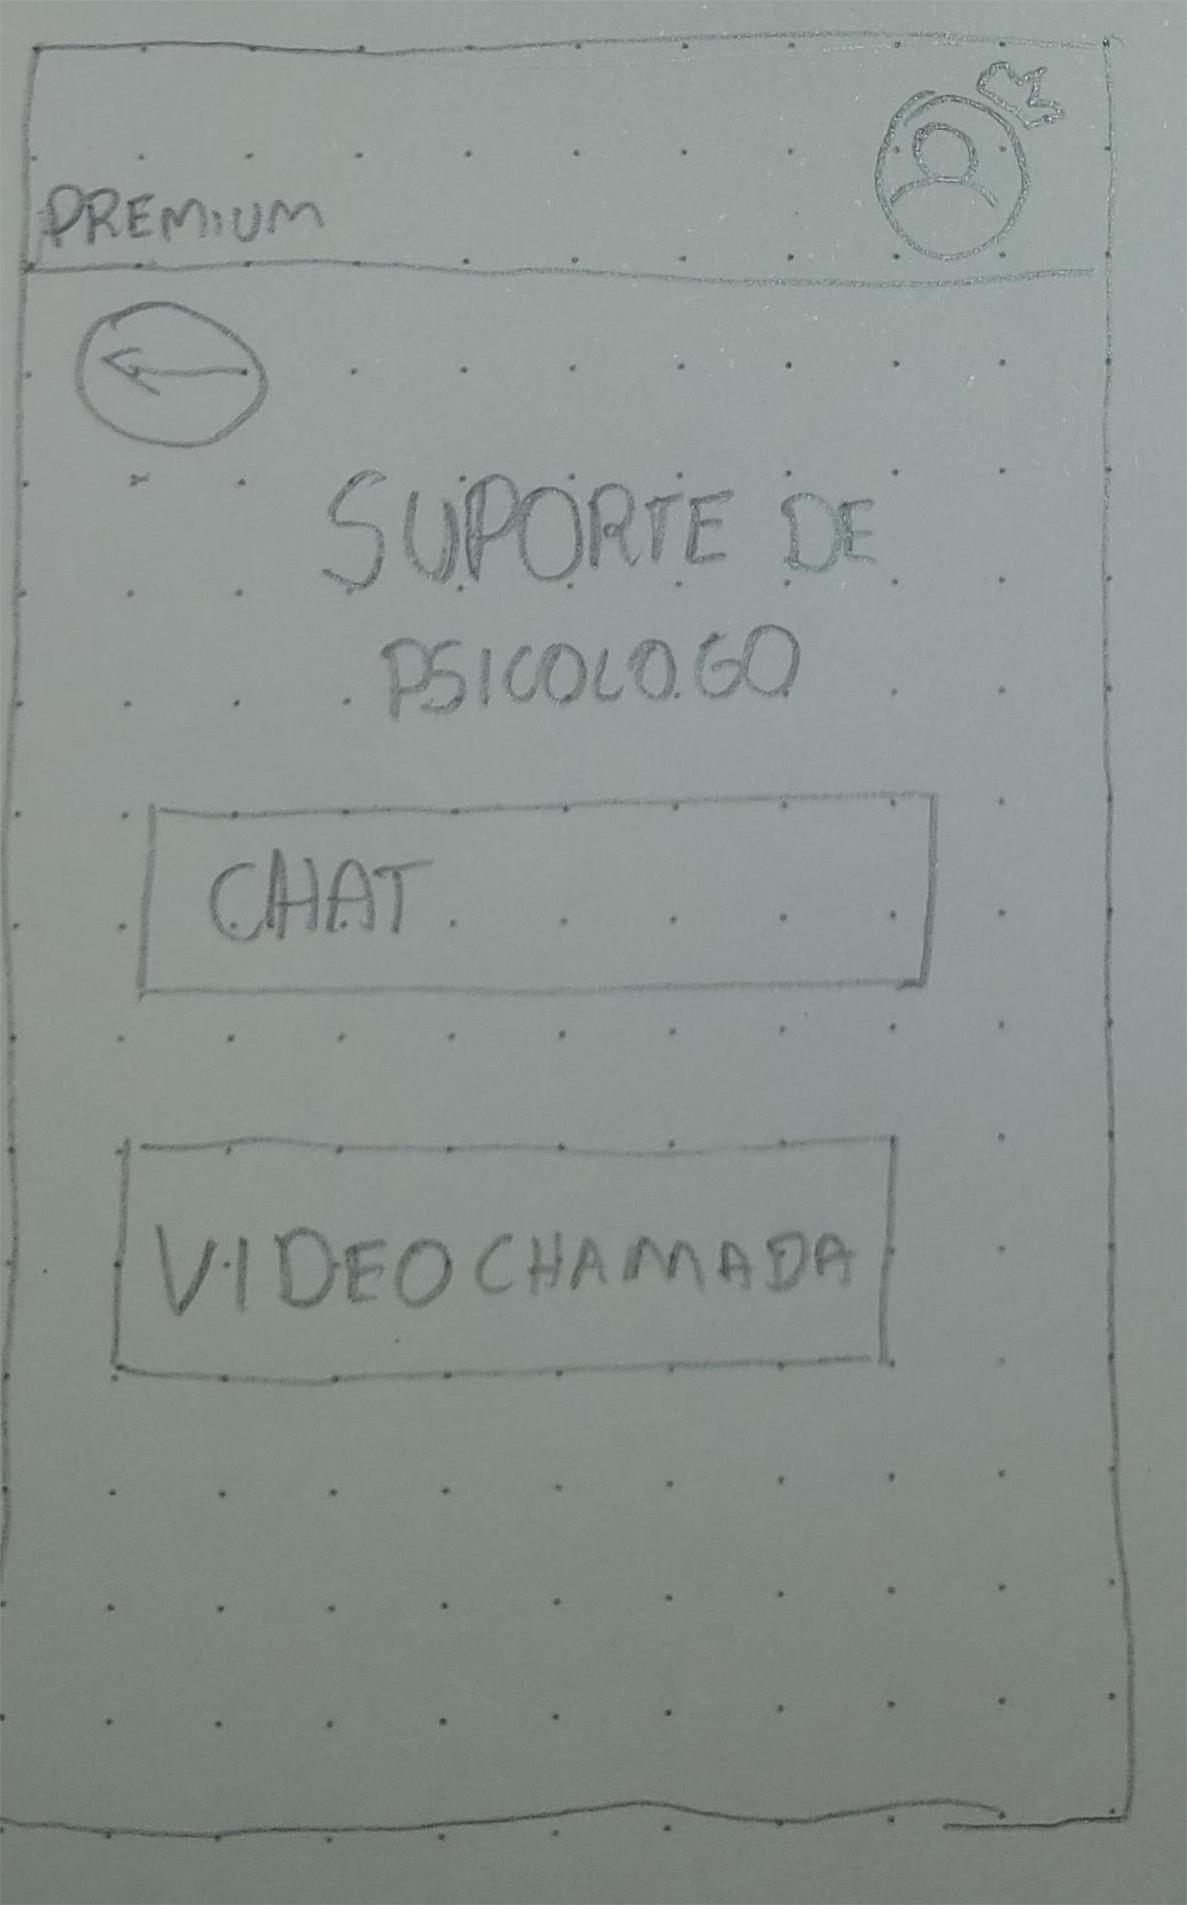 PREMIUM
SUPORTE DE
PSICOLOGO
CHAT
VIDEOCHAMADA